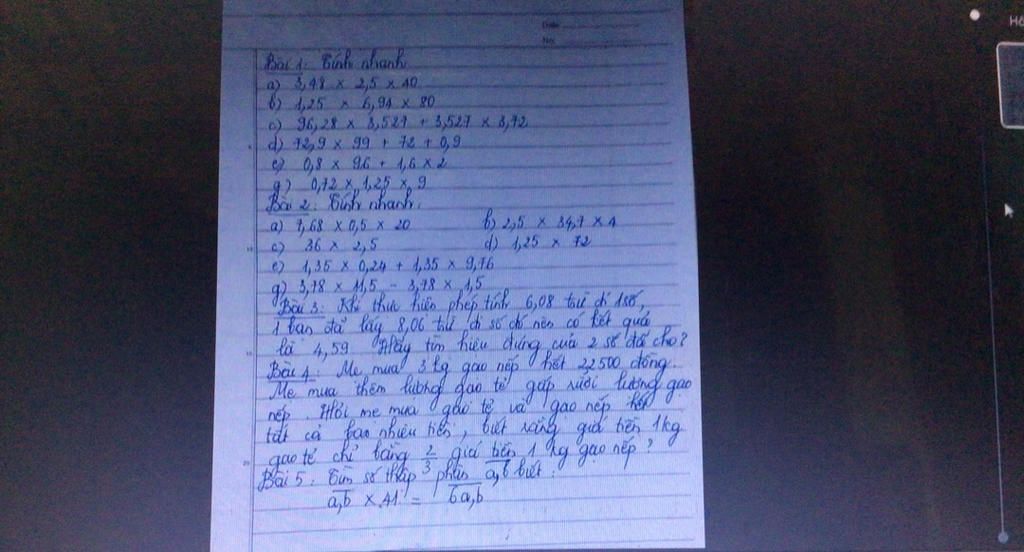 Date:
No:
Bài 1: Tính nhanh
a) 3,48 x 2,5 x 40
b) 1,25 x 6,94 x 80
c) 96,28 x 3,527 + 3,527 x 3,72
d) 72,9 x 99 + 72 + 0,9
e) 0,8 x 96 + 1,6 x 2
g) 0,72 x 1,25 x 9
Bài 2: Tính nhanh:
a) 7,68 x 0,5 x 20 b) 2,5 x 34,7 x 4
c) 36 x 2,5 d) 1,25 x 72
e) 1,35 x 0,24 + 1,35 x 9,76
g) 3,78 x 11,5 - 3,78 x 1,5
Bài 3: Khi thực hiện phép tính 6,08 trừ đi 1 số,
1 bạn đã lấy 8,06 trừ đi số đó nên có kết quả
là 4,59. Hãy tìm hiệu đúng của 2 số đã cho?
Bài 4: Mẹ mua 3 kg gạo nếp hết 22500 đồng.
Mẹ mua thêm lượng gạo tẻ gấp rưỡi lượng gạo
nếp. Hỏi mẹ mua gạo tẻ và gạo nếp hết
tất cả bao nhiêu tiền, biết rằng giá tiền 1kg
gạo tẻ chỉ bằng 2/3 giá tiền 1 kg gạo nếp?
Bài 5: Tìm số thập phân a,b biết:
a,b x 41 = 6a,b